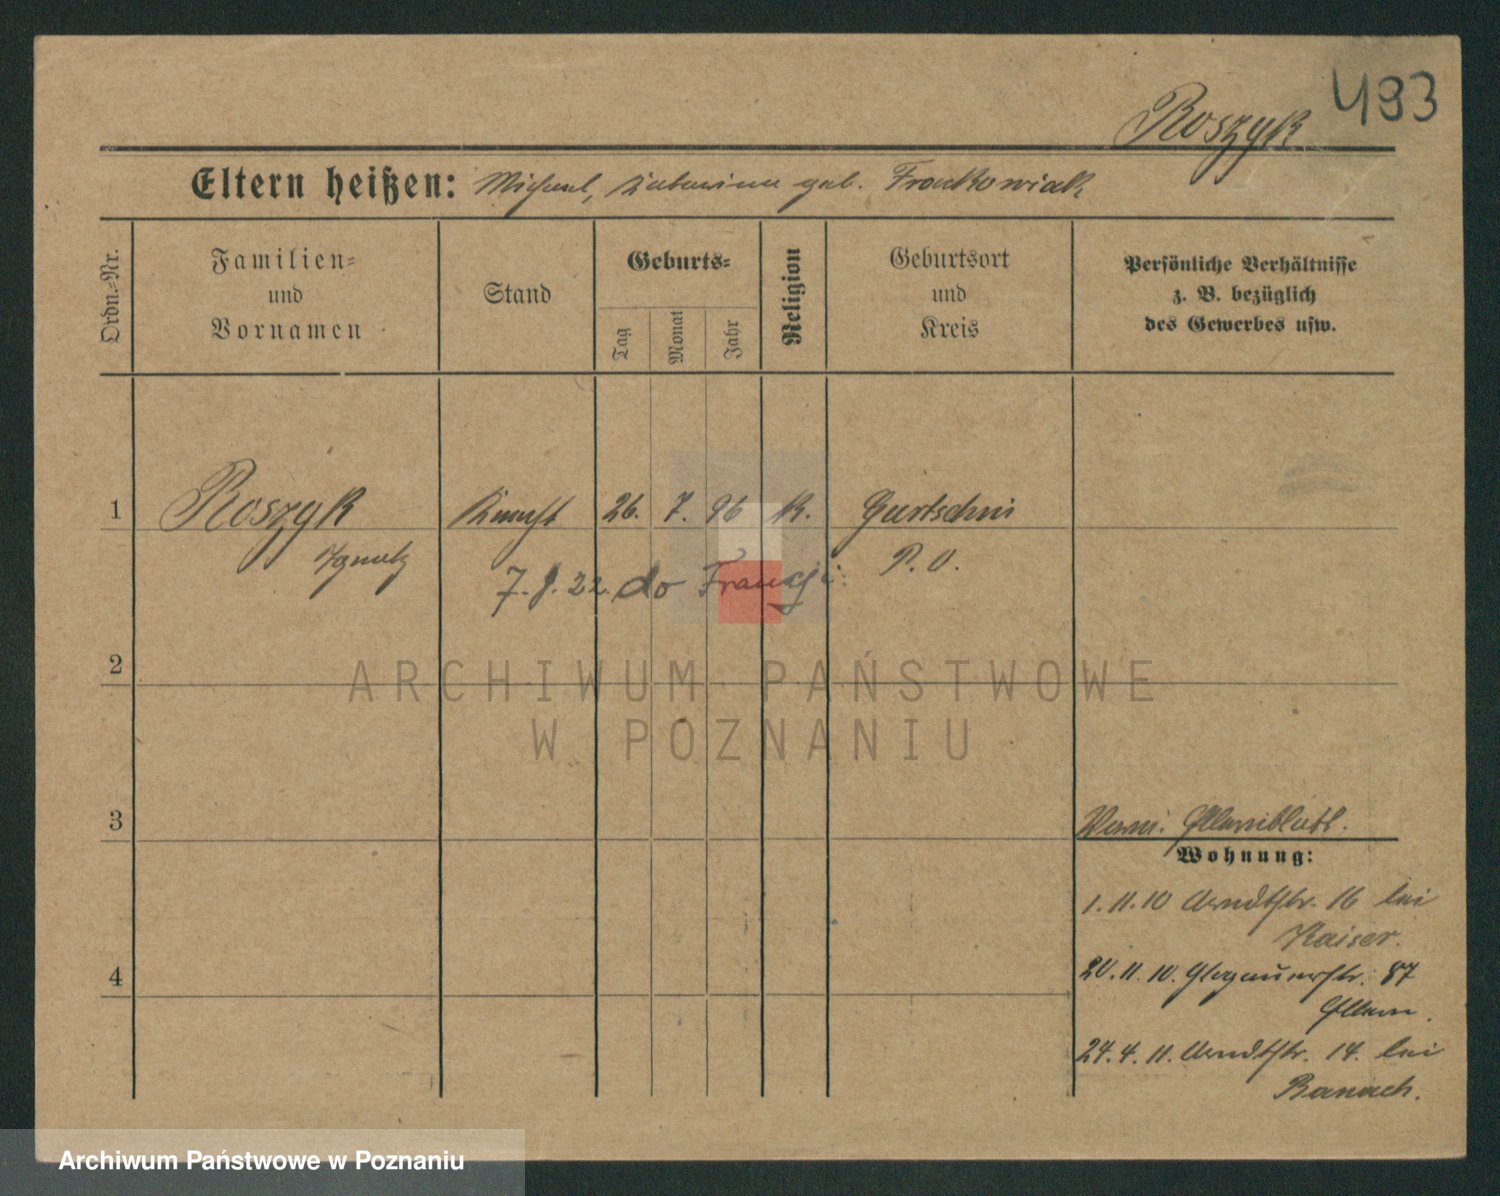 493
Roszyk
Eltern heißen: Michael, geb. Frackowiak
Ordn.-Nr.
Familien-
und
Vornamen
Stand
Geburts-
Tag
Monat
Jahr
Religion
Geburtsort
und
Kreis
Persönliche Verhältnisse
z. B. bezüglich
des Gewerbes usw.
1 Roszyk 26. 7. 96 k. Gurtschin
Ignatz P. O.
7. 8. 22. do Francji
2
ARCHIWUM PAŃSTWOWE
W POZNANIU
3
Elternblatt.
Wohnung:
1.11.10 Arndtstr. 16 bei
Kaiser.
4
20.11.10. Glogauerstr. 87
Eltern.
24.4.11. Arndtstr. 14. bei
Banach.
Archiwum Państwowe w Poznaniu